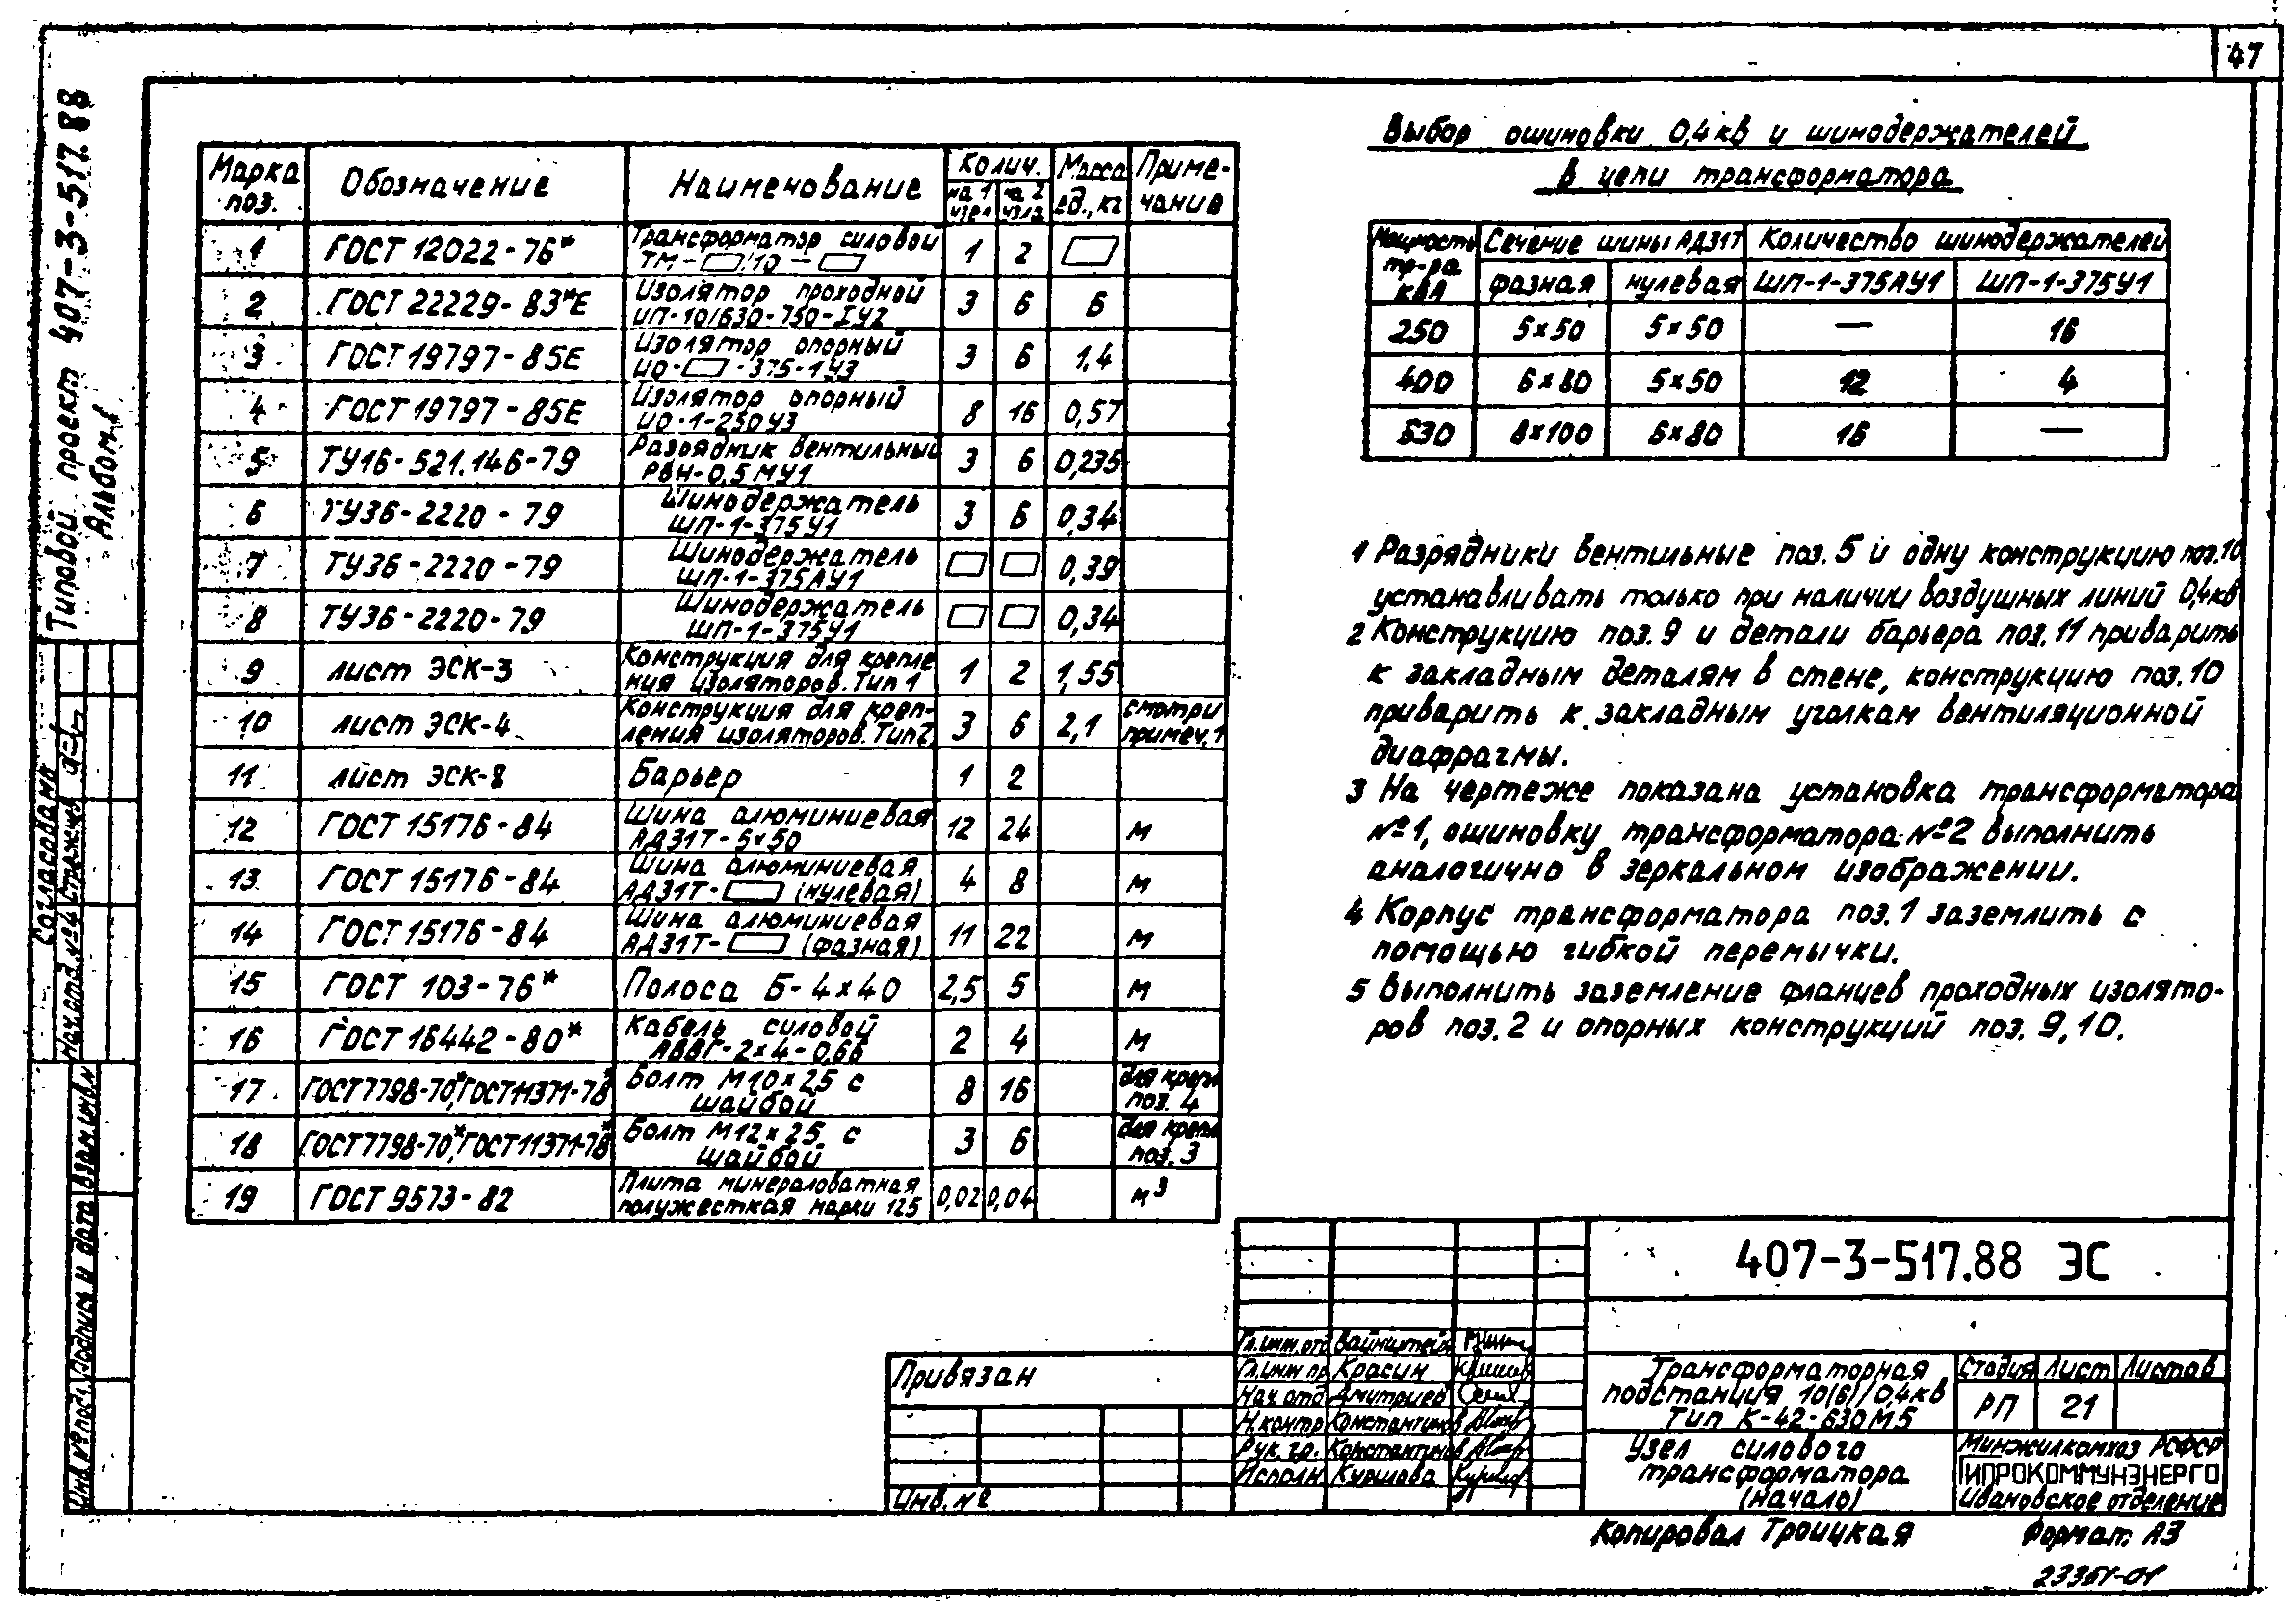 47
Типовой проект 407-3-517.88
Альбом 1
Согласовано
Инв.№ подл. Подпись и дата Взам.инв.№
Марка поз. Обозначение Наименование Колич. на 1 узел на 2 узла Масса ед., кг Приме-чание
1 ГОСТ 12022-76* Трансформатор силовой ТМ-▭/10-▭ 1 2 ▭
2 ГОСТ 22229-83*Е Изолятор проходной ИП-10/630-750-IУ2 3 6 6
3 ГОСТ 19797-85Е Изолятор опорный ИО-▭-375-1У3 3 6 1,4
4 ГОСТ 19797-85Е Изолятор опорный ИО-1-250У3 8 16 0,57
5 ТУ16-521.146-79 Разрядник вентильный РВН-0,5МУ1 3 6 0,235
6 ТУ36-2220-79 Шинодержатель ШП-1-375У1 3 6 0,34
7 ТУ36-2220-79 Шинодержатель ШП-1-375АУ1 ▭ ▭ 0,39
8 ТУ36-2220-79 Шинодержатель ШП-1-375У1 ▭ ▭ 0,34
9 лист ЭСК-3 Конструкция для крепле ния изоляторов. Тип 1 1 2 1,55
10 лист ЭСК-4 Конструкция для креп-ления изоляторов. Тип 2 3 6 2,1 смотри примеч. 1
11 лист ЭСК-8 Барьер 1 2
12 ГОСТ 15176-84 Шина алюминиевая АД31Т-5х50 12 24 м
13 ГОСТ 15176-84 Шина алюминиевая АД31Т-▭ (нулевая) 4 8 м
14 ГОСТ 15176-84 Шина алюминиевая АД31Т-▭ (фазная) 11 22 м
15 ГОСТ 103-76* Полоса Б-4х40 2,5 5 м
16 ГОСТ 16442-80* Кабель силовой АВВГ-2х4-0,66 2 4 м
17 ГОСТ7798-70*,ГОСТ11371-78* Болт М10х25 с шайбой 8 16 для креп. поз. 4
18 ГОСТ7798-70*,ГОСТ11371-78* Болт М12х25 с шайбой 3 6 для креп. поз. 3
19 ГОСТ 9573-82 Плита минераловатная полужесткая марки 125 0,02 0,04 м³
Выбор ошиновки 0,4кв и шинодержателей
в цепи трансформатора
Мощность тр-ра кВА Сечение шины АД31Т Количество шинодержателей
фазная нулевая ШП-1-375АУ1 ШП-1-375У1
250 5х50 5х50 — 16
400 6х80 5х50 12 4
630 8х100 6х80 16 —
1 Разрядники вентильные поз. 5 и одну конструкцию поз.10
устанавливать только при наличии воздушных линий 0,4кв
2 Конструкцию поз. 9 и детали барьера поз. 11 приварить
к закладным деталям в стене, конструкцию поз. 10
приварить к закладным уголкам вентиляционной
диафрагмы.
3 На чертеже показана установка трансформатора
№1, ошиновку трансформатора №2 выполнить
аналогично в зеркальном изображении.
4 Корпус трансформатора поз. 1 заземлить с
помощью гибкой перемычки.
5 Выполнить заземление фланцев проходных изолято-
ров поз. 2 и опорных конструкций поз. 9, 10.
407-3-517.88 ЭС
Гл.инж.отд Вайнштейн
Гл.инж.пр Красин
Нач.отд Дмитриев
Н.контр Константинов
Рук.гр. Константинов
Исполн. Куршова
Привязан
Инв. №
Трансформаторная
подстанция 10(6)/0,4кв
Тип К-42-630М5
Стадия Лист Листов
РП 21
Узел силового
трансформатора
(начало)
Минжилкомхоз РСФСР
ГИПРОКОММУНЭНЕРГО
Ивановское отделение
Копировал Троицкая
Формат А3
23361-01